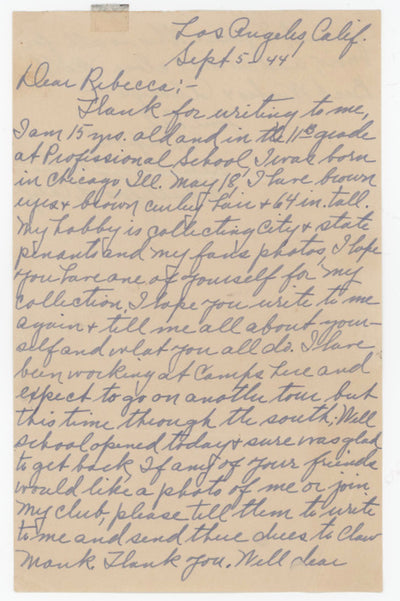 Los Angeles, Calif.
Sept 5-44
Dear Rebecca;-
Thank for writing to me,
I am 15 yrs. old and in the 11th grade
at Proffissional School, I was born
in Chicago, Ill. May 18, I have brown
eyes & brown curley hair & 64 in. tall.
My hobby is collecting City & state
penants and my fans photos, I hope
you have one of yourself for my
collection, I hope you write to me
again & tell me all about your-
self and what you all do. I have
been working at Camps here and
expect to go on another tour, but
this time through the south; Well
school opened today & sure was glad
to get back, If any of your friends
would like a photo of me or join
my club, please tell them to write
to me and send there dues to Claw
Mank. Thank you. Well dear